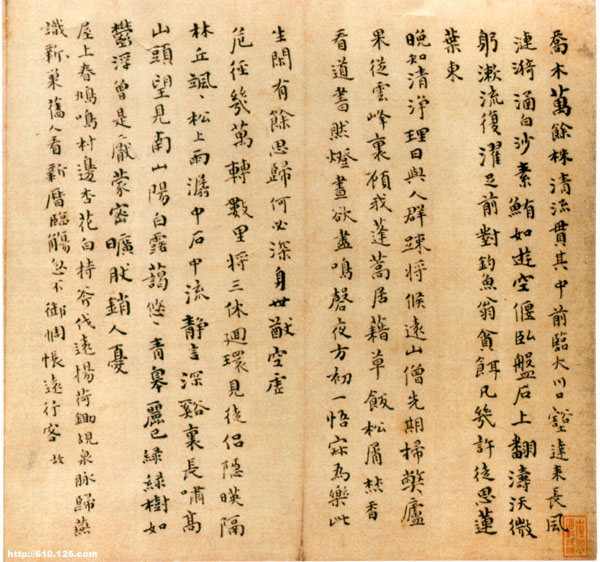 喬木萬餘株清流貫其中前臨大川口豁達來長風
漣漪涵白沙素鮪如遊空偃臥盤石上翻濤沃微
躬漱流復濯足前對釣魚翁貪餌凡幾許徒思蓮
葉東
晚知清淨理日與人群踈將候遠山僧先期掃弊廬
果從雲峰裏顧我蓬蒿居藉草飯松屑焚香
看道書然燈晝欲盡鳴磬夜方初一悟寂為樂此
生閑有餘思歸何必深身世猷空虛
危徑幾萬轉數里將三休迴環見徒侶隱暎隔
林丘颯〻松上雨潺中石中流靜言深谿裏長嘯高
山頭望見南山陽白露藹悠〻青皋麗已綠綠樹如
鬱浮曾是厭蒙密曠然銷人憂
屋上春鳩鳴村邊杏花白持斧伐遠揚荷鋤覘泉脉歸燕
識新巢舊人看新曆臨觴忽不御惆悵遠行客
http://610.126.com/